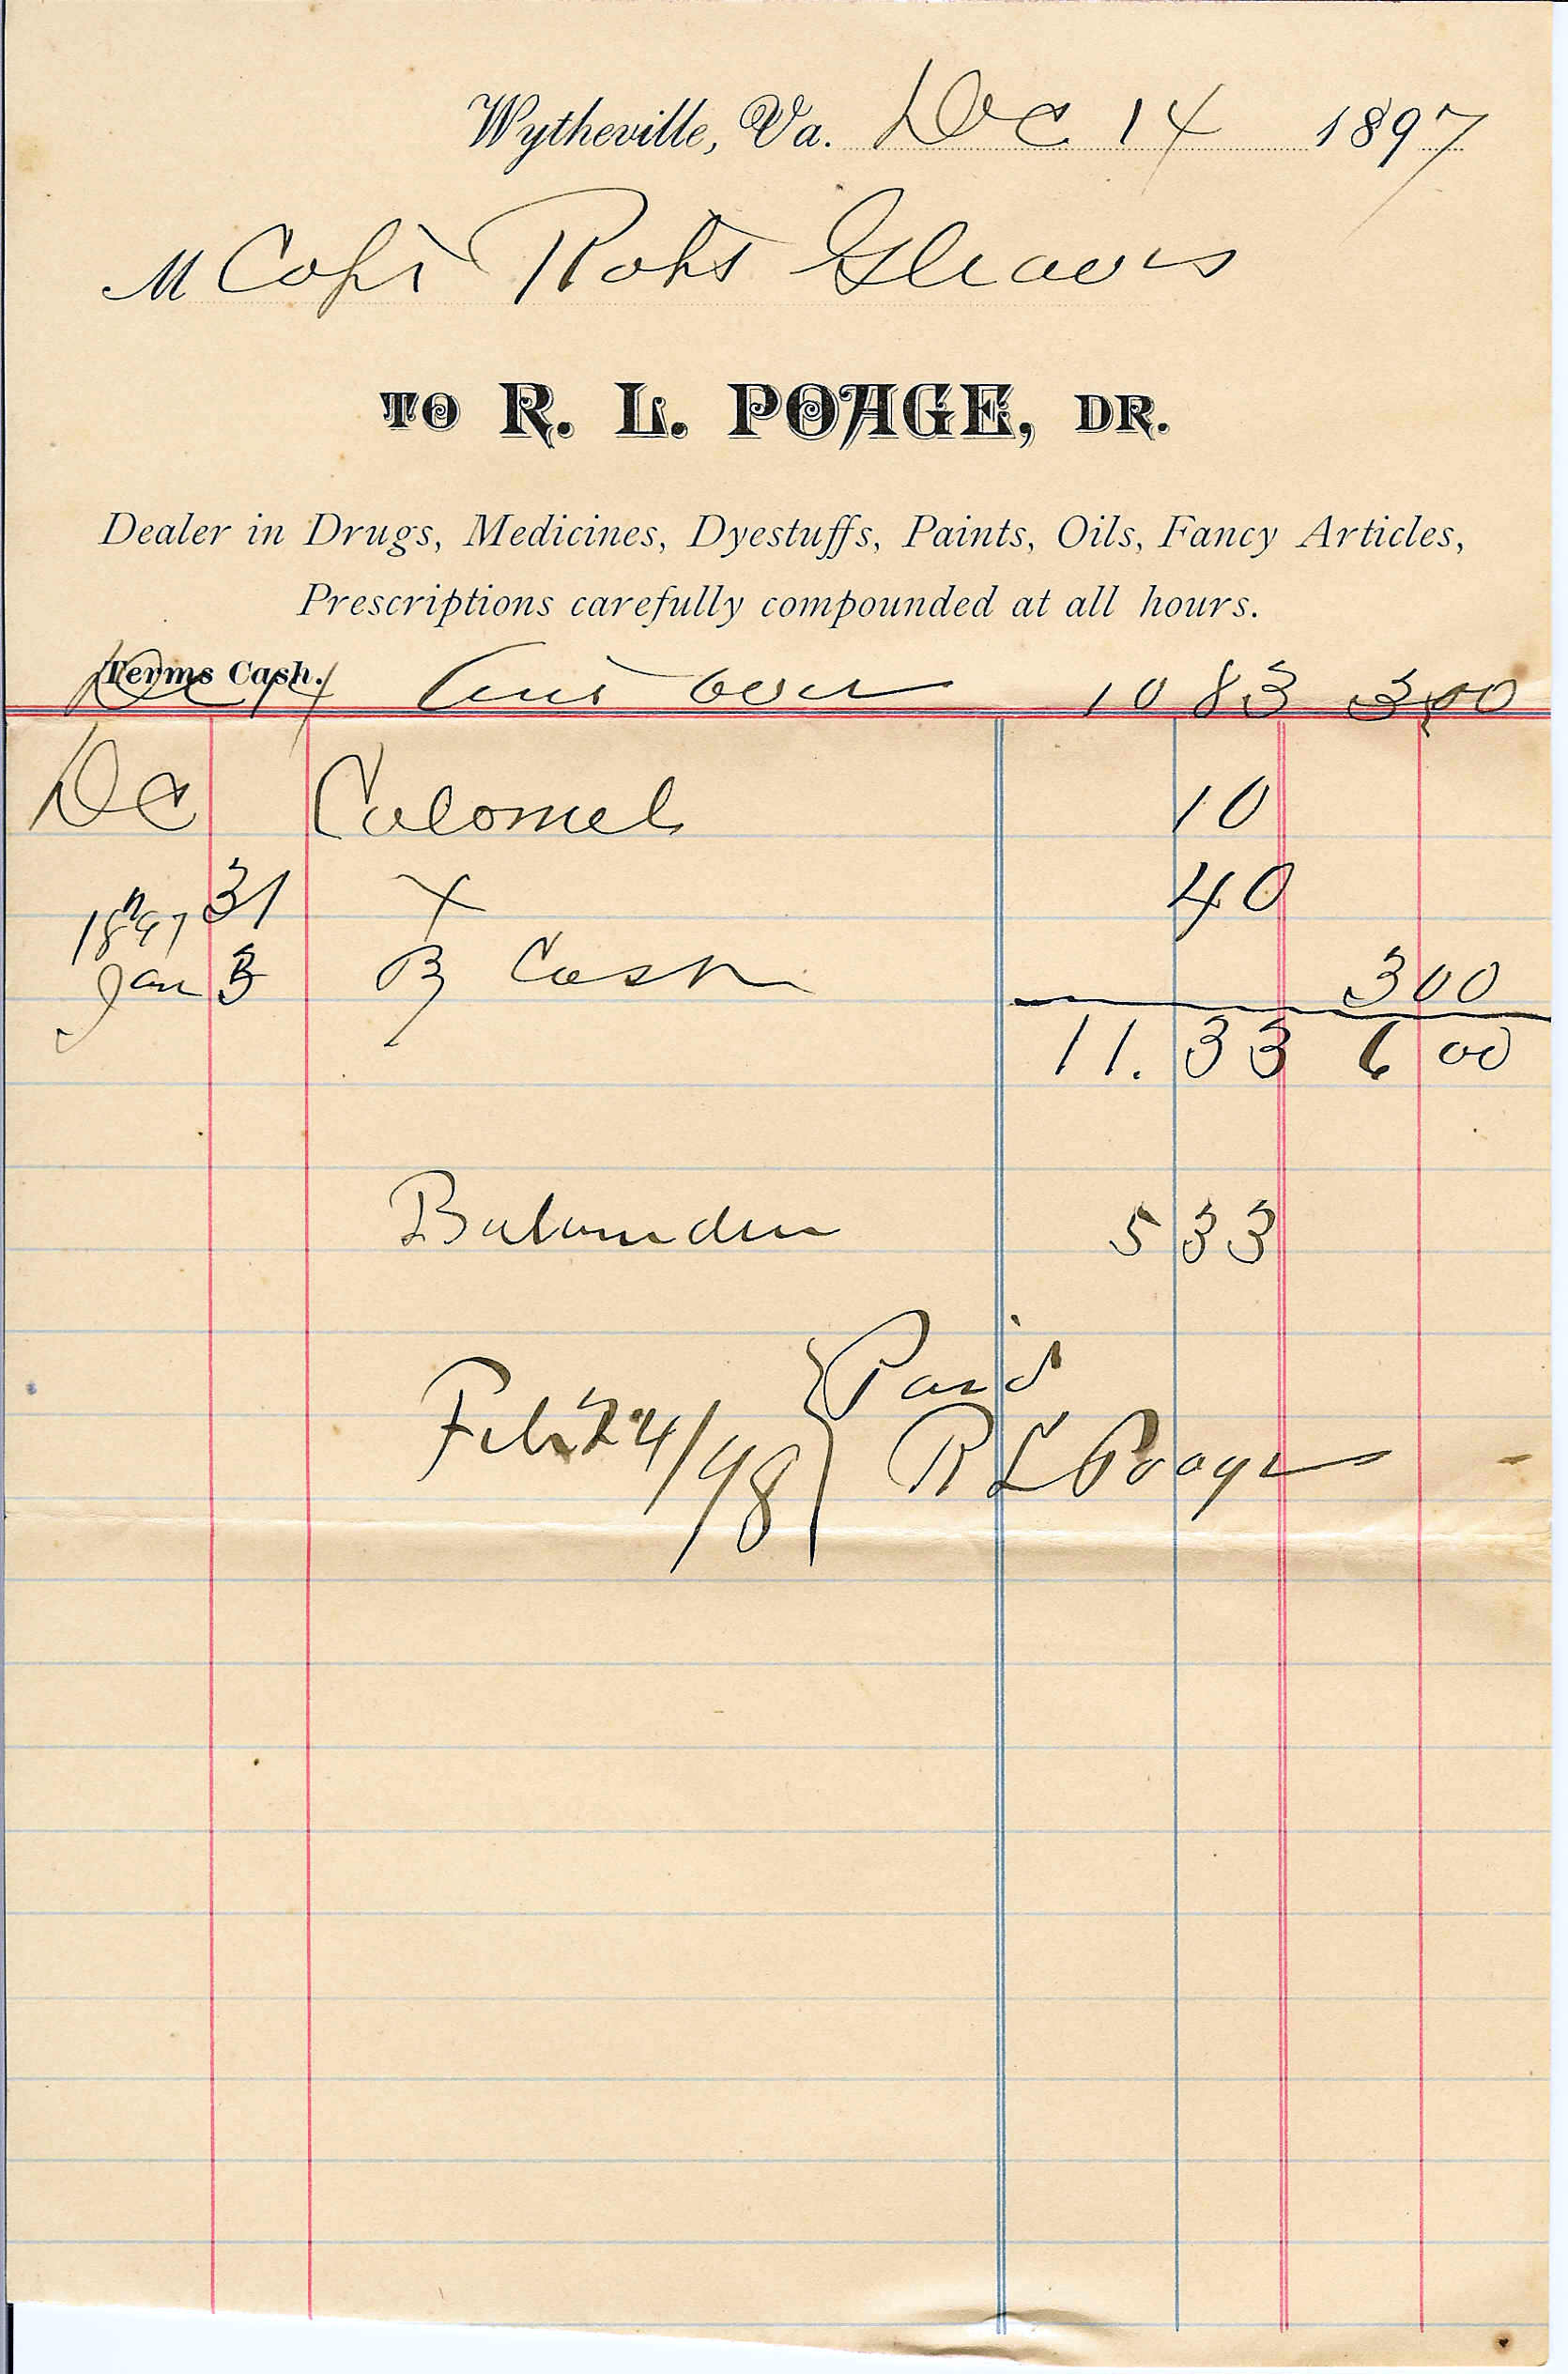 Wytheville, Va. Dec 14 1897
M Capt Robt Gleaves
TO R. L. POAGE, DR.
Dealer in Drugs, Medicines, Dyestuffs, Paints, Oils, Fancy Articles,
Prescriptions carefully compounded at all hours.
Terms Cash.
Dec 14 Amt over 10 83 3,00
Dec Calomel 10
31 X 40
1897
Jan 3 By Cash 300
11. 33 6 00
Balance due 5 33
Feb 24/98 } Paid
R L Poage